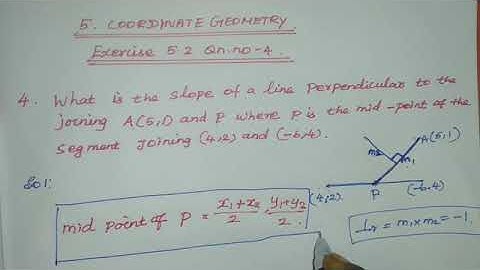 5. COORDINATE GEOMETRY.
Exercise 5.2 Qn.no-4.
4. What is the slope of a line perpendicular to the
joining A(5,1) and P where P is the mid-point of the
segment joining (4,2) and (-6,4).
Sol:
mid point of P = x₁+x₂/2, y₁+y₂/2.
A(5,1)
m₂
m₁
(4,2)
P
(-6,4)
⊥r = m₁×m₂ = -1.